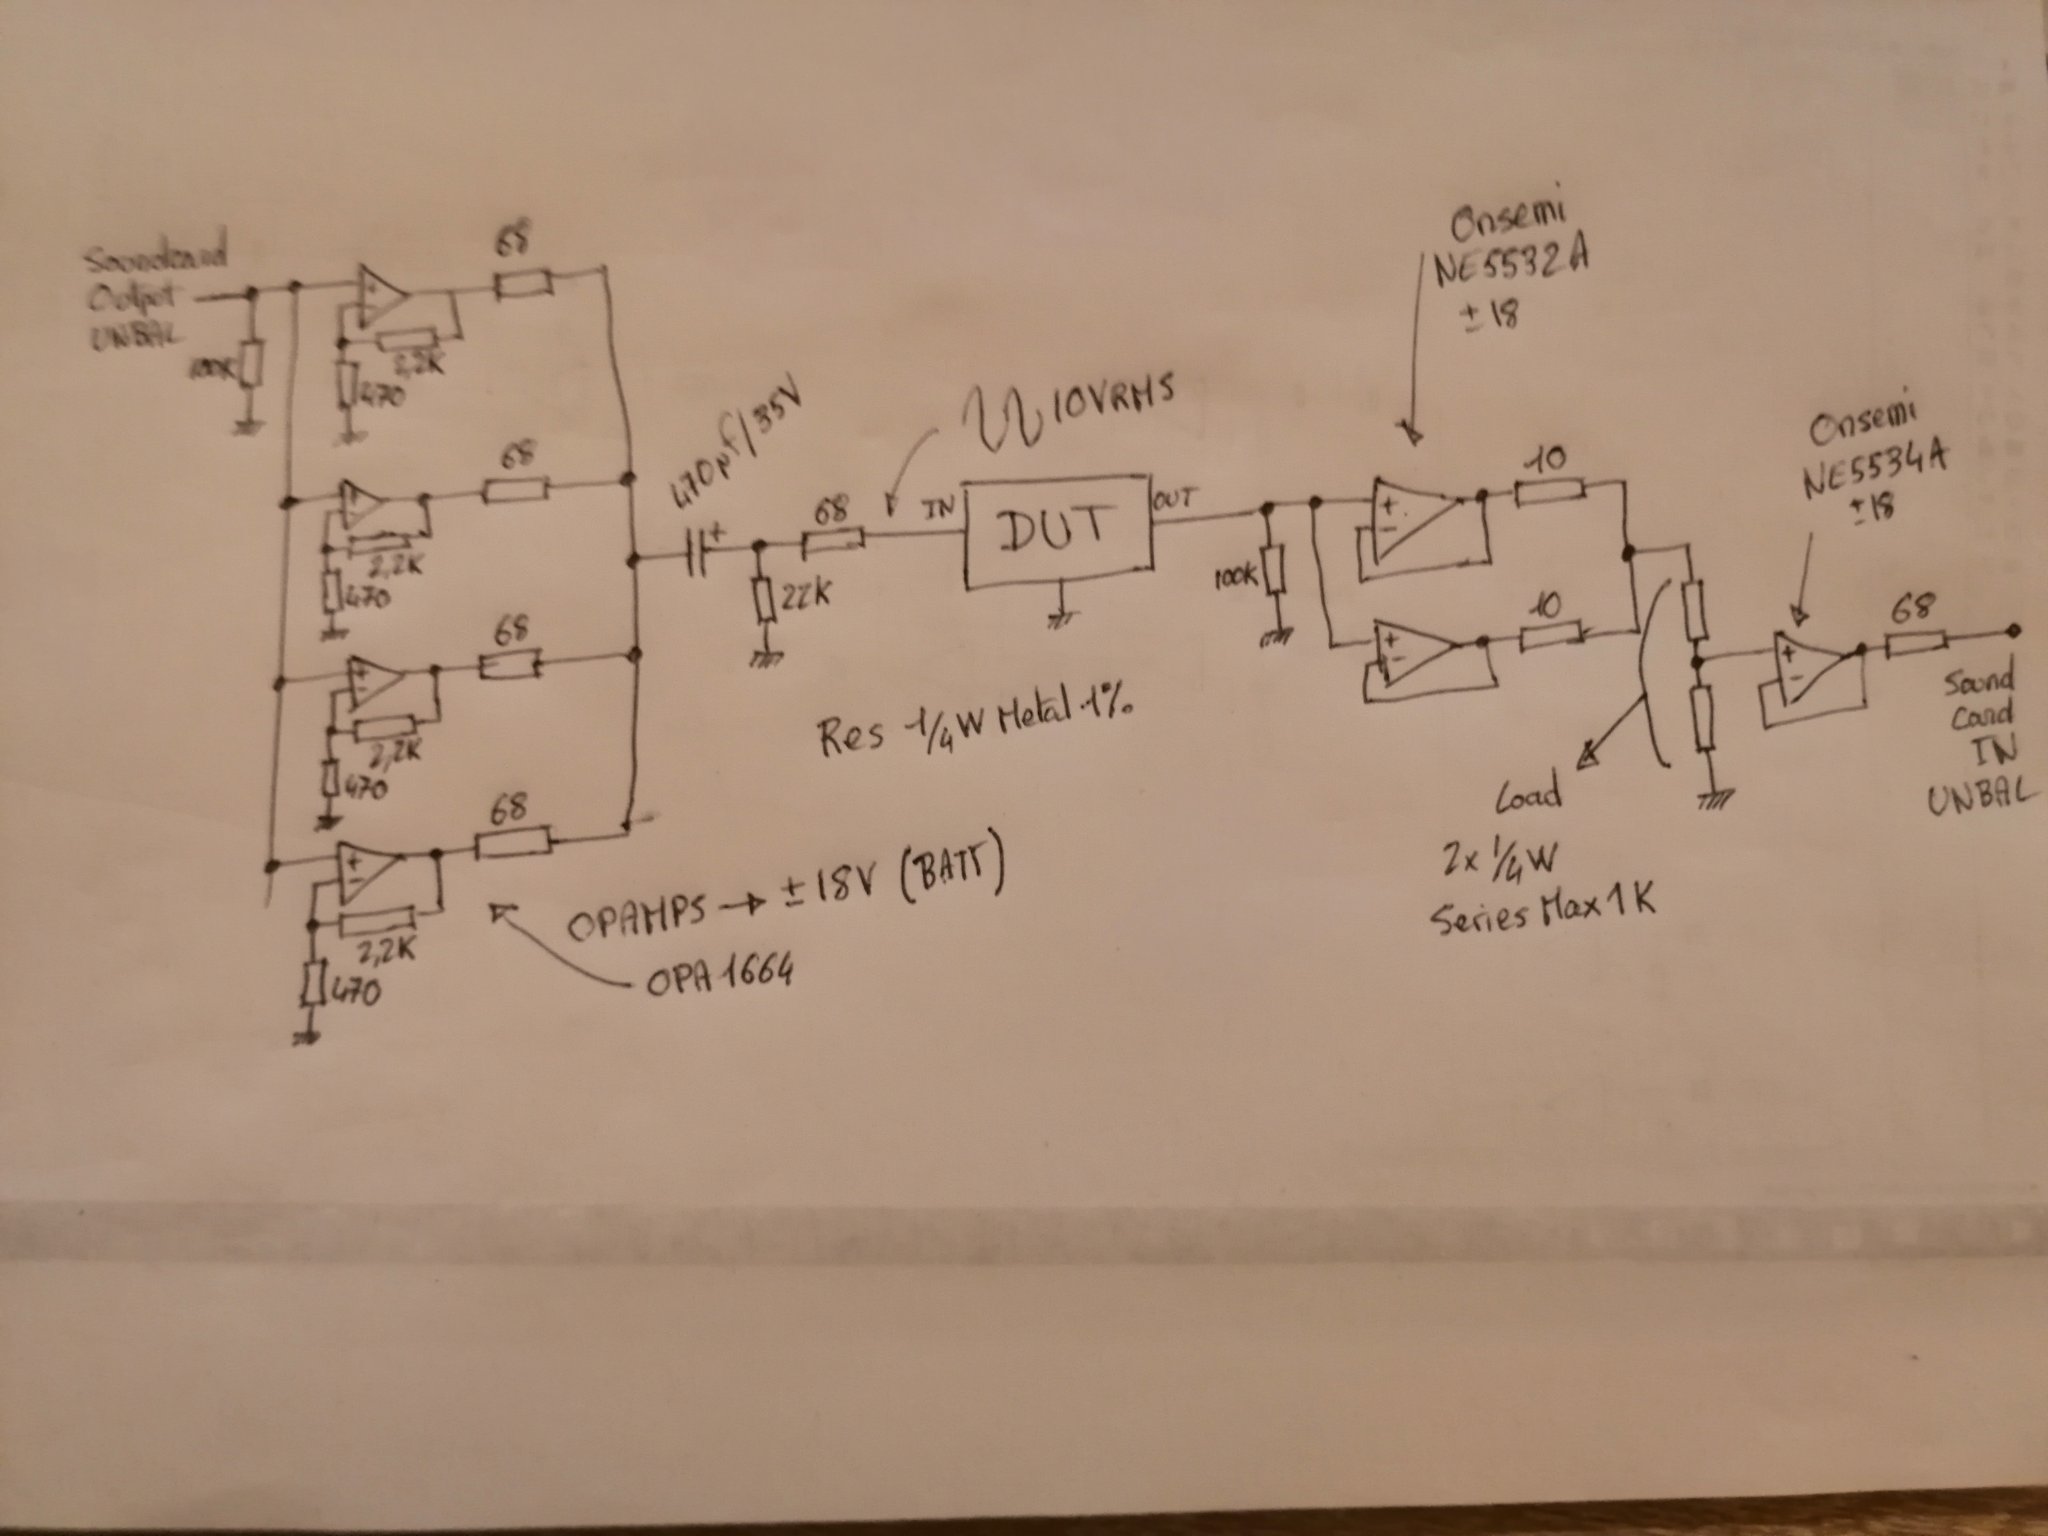 Soundcard
Output
UNBAL
100K
68
2,2K
470
68
2,2K
470
68
2,2K
470
68
2,2K
470
OPAMPS → ±18V (BATT)
OPA1664
470µf/35V
+
22K
68
10VRMS
IN
DUT
OUT
Res 1/4W Metal 1%
100K
Onsemi
NE5532A
±18
+
-
10
+
-
10
Load
2x 1/4W
Series Max 1K
Onsemi
NE5534A
±18
+
-
68
Sound
Card
IN
UNBAL